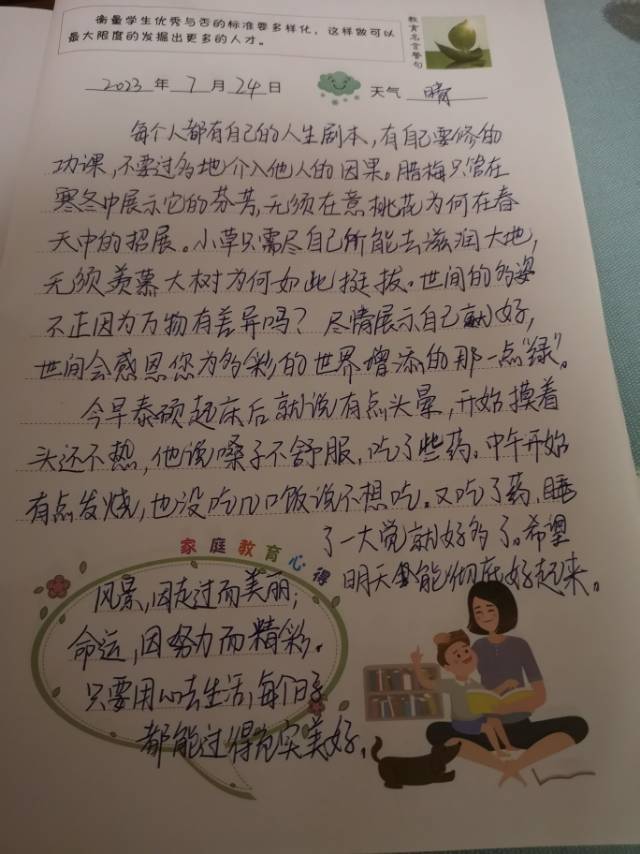 衡量学生优秀与否的标准要多样化，这样做可以
最大限度的发掘出更多的人才。
教育名言警句
2023年7月24日 天气 晴
每个人都有自己的人生剧本，有自己要修的
功课，不要过多地介入他人的因果。腊梅只管在
寒冬中展示它的芬芳，无须在意桃花为何在春
天中的招展。小草只需尽自己所能去滋润大地，
无须羡慕大树为何如此挺拔。世间的多姿
不正因为万物有差异吗？尽情展示自己就好，
世间会感恩您为多彩的世界增添的那一点“绿”。
今早泰硕起床后就说有点头晕，开始摸着
头还不热，他说嗓子不舒服，吃了些药。中午开始
有点发烧，也没吃几口饭说不想吃。又吃了药，睡
了一大觉就好多了。希望
明天会能彻底好起来。
家庭教育心得
风景，因走过而美丽；
命运，因努力而精彩。
只要用心去生活，每个日子
都能过得充实美好。